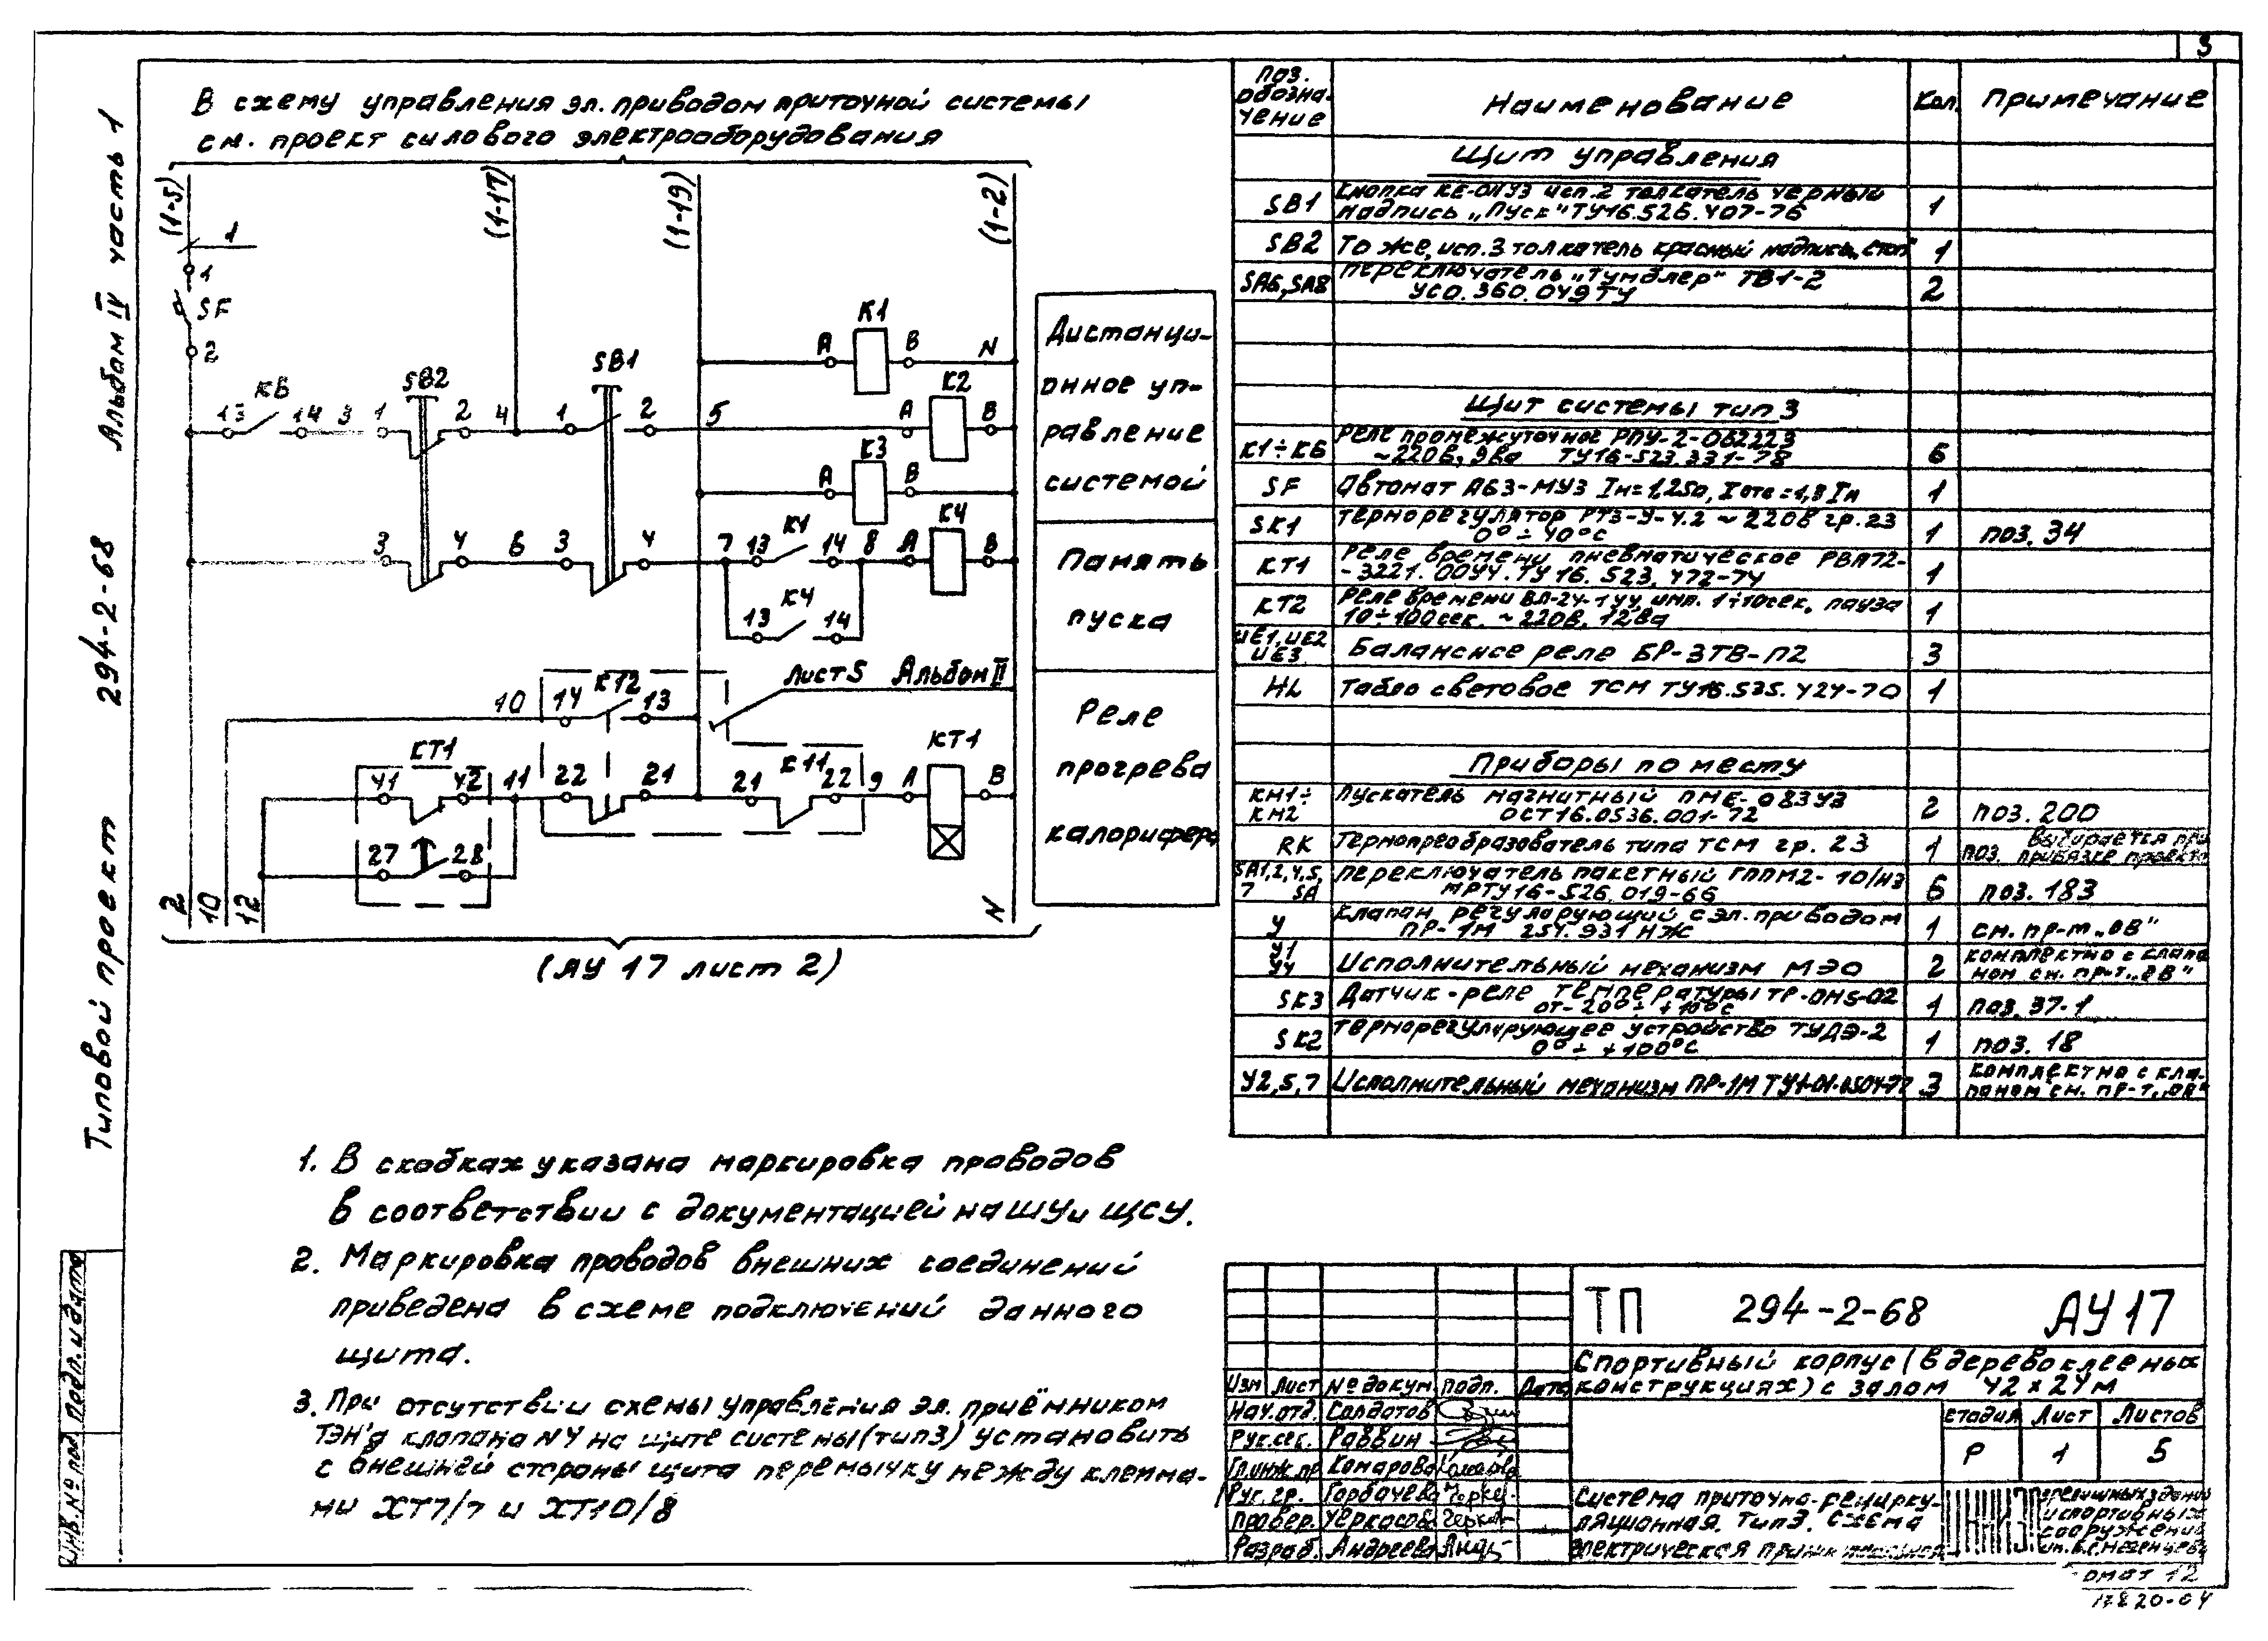 3
Альбом IV часть 1
294-2-68
Типовой проект
В схему управления эл. приводом приточной системы
см. проект силового электрооборудования
(1-5) (1-17) (1-19) (1-2)
1
1
SF
2
K1
A B N
SB2 SB1 K2
K6
13 14 3 1 2 4 1 2 5 A B
K3
A B
K4
3 4 6 3 4 7 13 K1 14 8 A B
K4
13 14
Лист 5 Альбом II
10 14 KT2 13
KT1 K11 KT1
41 42 11 22 21 21 22 9 A B
27 28
2 10 12 N
(АУ 17 лист 2)
Дистанци-
онное уп-
равление
системой
Память
пуска
Реле
прогрева
калорифера
Поз. обозна-чение Наименование Кол. Примечание
Щит управления
SB1 Кнопка КЕ-011У3 исп.2 толкатель черный
надпись „Пуск" ТУ16.526.407-76 1
SB2 То же, исп.3 толкатель красный надпись „Стоп" 1
SA6, SA8 Переключатель „Тумблер" ТВ1-2
УСО.360.049ТУ 2
Щит системы тип 3
K1÷K6 Реле промежуточное РПУ-2-062223
~220в, 9ва ТУ16-523.331-78 6
SF Автомат А63-МУ3 Iн=1,25а, Iотс=1,3Iн 1
SK1 Терморегулятор РТ3-У-4.2 ~220в гр.23
0°÷40°С 1 поз. 34
KT1 Реле времени пневматическое РВП72-
-3221.00У4.ТУ16.523.472-74 1
KT2 Реле времени ВЛ-24-1У4, имп. 1÷10сек, пауза
10÷100сек. ~220в, 12ва 1
UE1, UE2
UE3 Балансное реле БР-3ТВ-П2 3
HL Табло световое ТСМ ТУ16.535.424-70 1
Приборы по месту
KM1÷
KM2 Пускатель магнитный ПМЕ-083У3
ОСТ16.0536.001-72 2 поз. 200
RK Термопреобразователь типа ТСМ гр. 23 1 поз. выбирается при
привязке проекта
SA1,2,4,5,
7 SA Переключатель пакетный ГППМ2-10/Н3
МРТУ16-526.019-66 6 поз. 183
У Клапан регулирующий с эл. приводом
ПР-1М 25ч.931НЖ 1 см. пр-т „ОВ"
У1
У4 Исполнительный механизм МЭО 2 комплектно с клапа
ном см. пр-т. „ОВ"
SK3 Датчик-реле температуры ТР-ОМ5-02
от -20°÷ +10°С 1 поз. 37-1
SK2 Терморегулирующее устройство ТУДЭ-2
0°÷ +100°С 1 поз. 18
У2,5,7 Исполнительный механизм ПР-1М 3 комплектно с кла-
паном см. пр-т. „ОВ"
1. В скобках указана маркировка проводов
в соответствии с документацией на ШУ и ЩСУ.
2. Маркировка проводов внешних соединений
приведена в схеме подключений данного
щита.
3. При отсутствии схемы управления эл. приёмником
ТЭН'а клапана N4 на щите системы (тип3) установить
с внешней стороны щита перемычку между клемма-
ми ХТ7/7 и ХТ10/8
Инв.№ подл. Подп. и дата
ТП 294-2-68 АУ17
Спортивный корпус (в деревоклееных
конструкциях) с залом 42х24м
Изм Лист № докум. подп. Дата
Нач.отд. Солдатов
Рук.сек. Раввин
Гл.инж.пр Комарова
Рук. гр. Горбачева
Провер. Черкасова
Разраб. Андреева
Стадия Лист Листов
Р 1 5
Система приточно-рецирку-
ляционная. Тип3. Схема
электрическая принципиальная
зрелищных зданий
и спортивных
сооружений
им. Б.С. Мезенцева
Формат 12
17820-04